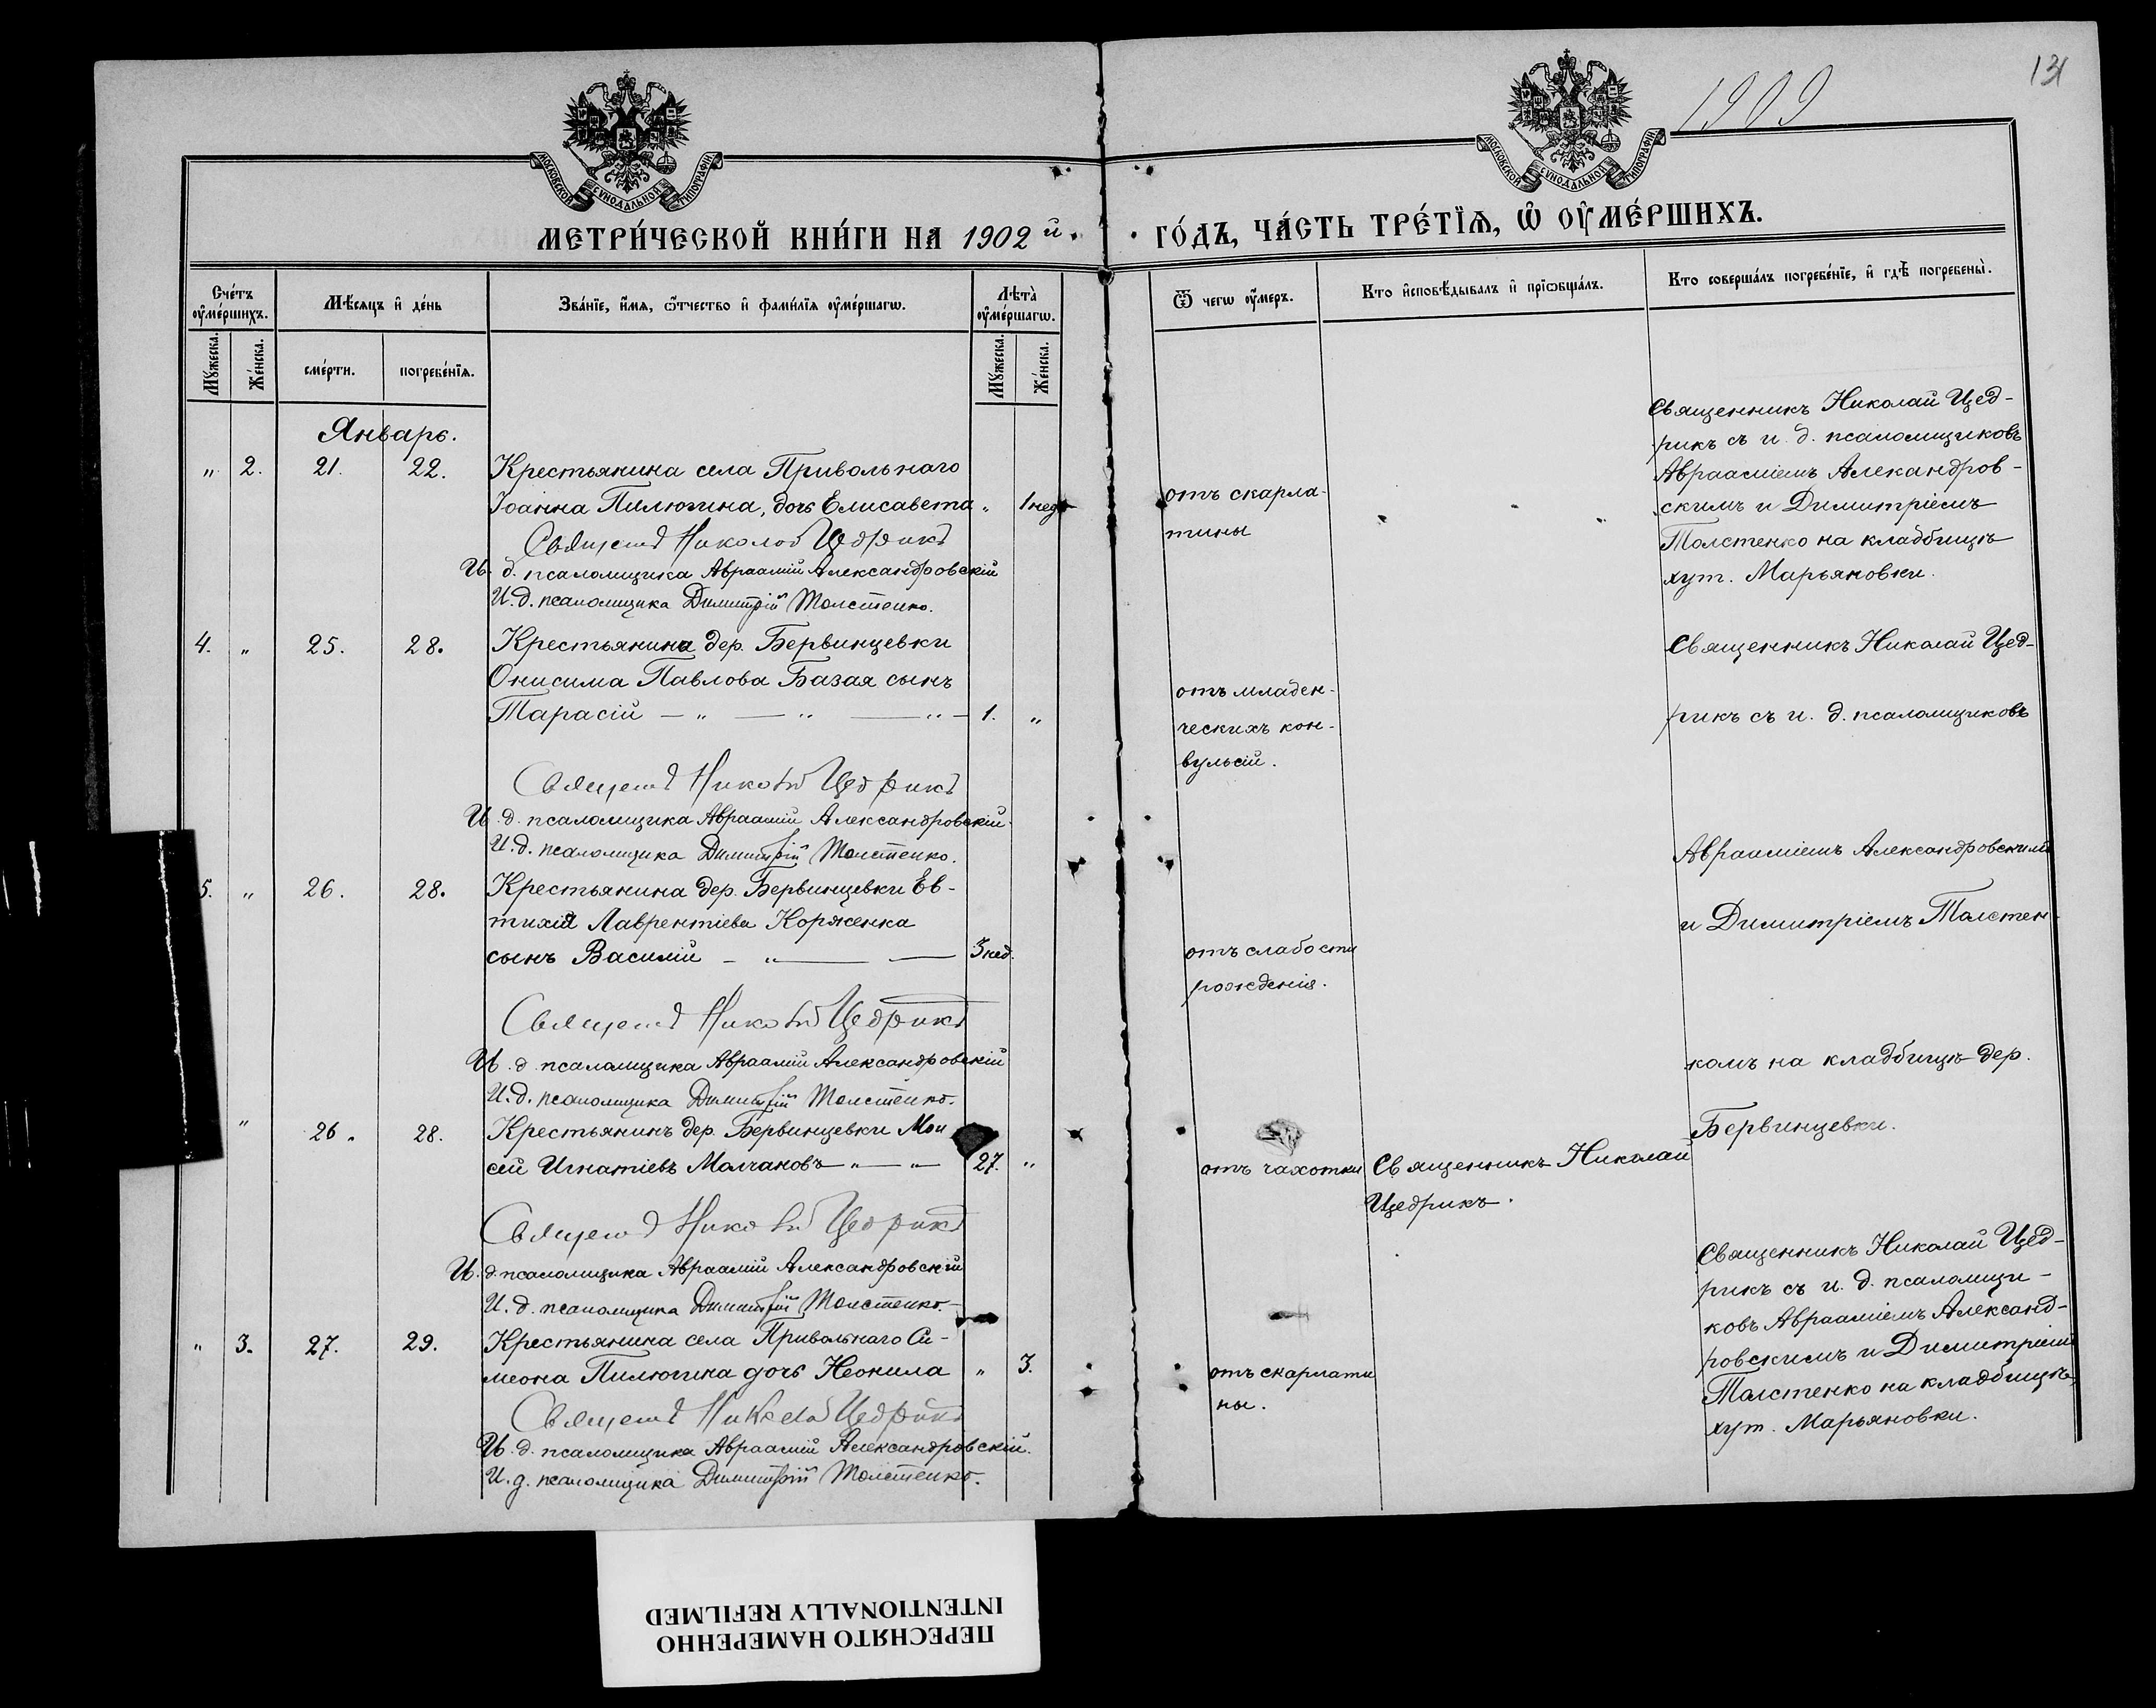 1909
131
МОСКОВСКОЙ СѴНОДАЛЬНОЙ ТИПОГРАФІИ
МОСКОВСКОЙ СѴНОДАЛЬНОЙ ТИПОГРАФІИ
МЕТРИ́ЧЕСКОЙ КНИ́ГИ НА 1902й.
ГО́ДЪ, ЧА́СТЬ ТРЕ́ТЇѦ, Ѡ ОУ҆МЕ́РШИХЪ.
Сче́тъ оу҆ме́ршихъ.
Мѣ́сяцъ и҆ де́нь
Зва́нїе, и҆́мѧ, ѻ҆́тчество и҆ фами́лїѧ оу҆ме́ршагѡ.
Лѣта̀ оу҆ме́ршагѡ.
Ѿ чегѡ оу҆́меръ.
Кто и҆сповѣ́дывалъ и҆ прїѡбща́лъ.
Кто соверша́лъ погребе́нїе, и҆ гдѣ̀ погребены̀.
Му́жеска.
Же́нска.
сме́рти.
погребе́нїѧ.
Му́жеска.
Же́нска.
Январь.
„ 2. 21. 22. Крестьянина села Привольнаго
Іоанна Пилюгина, дочь Елисавета „ 1 нед
Священ Николай Цедрикъ
И. д. псаломщика Авраамій Александровскій
И. д. псаломщика Димитрій Толстенко.
отъ скарла-
тины
Священникъ Николай Цед-
рикъ съ и. д. псаломщиковъ
Аврааміемъ Александров-
скимъ и Димитріемъ
Толстенко на кладбищѣ
хут. Марьяновки.
4. „ 25. 28. Крестьянина дер. Бервинцевки
Онисима Павлова Базая сынъ
Тарасій — „ — „ — „ — 1. „
Священ Николай Цедрикъ
И. д. псаломщика Авраамій Александровскій.
И. д. псаломщика Димитрій Толстенко.
отъ младен-
ческихъ кон-
вульсій.
Священникъ Николай Цед-
рикъ съ и. д. псаломщиковъ
Аврааміемъ Александровскимъ
и Димитріемъ Толстен-
комъ на кладбищѣ дер.
Бервинцевки.
5. „ 26. 28. Крестьянина дер. Бервинцевки Ев-
тихія Лаврентіева Корженка
сынъ Василій — „ — 3 нед.
Священ Николай Цедрикъ
И. д. псаломщика Авраамій Александровскій
И. д. псаломщика Димитрій Толстенко.
отъ слабости
рожденія.
„ 26. 28. Крестьянинъ дер. Бервинцевки Мои
сей Игнатіевъ Молчановъ — „ — „ 27. „
Священ Николай Цедрикъ
И. д. псаломщика Авраамій Александровскій
И. д. псаломщика Димитрій Толстенко.
отъ чахотки Священникъ Николай
Цедрикъ.
„ 3. 27. 29. Крестьянина села Привольнаго Си-
меона Пилюгина дочь Неонила „ 3.
Священ Николай Цедрикъ
И. д. псаломщика Авраамій Александровскій.
И. д. псаломщика Димитрій Толстенко.
отъ скарлати
ны.
Священникъ Николай Цед-
рикъ съ и. д. псаломщи-
ковъ Аврааміемъ Александ-
ровскимъ и Димитріемъ
Толстенко на кладбищѣ
хут. Марьяновки.
ПЕРЕСНЯТО НАМЕРЕННО
INTENTIONALLY REFILMED